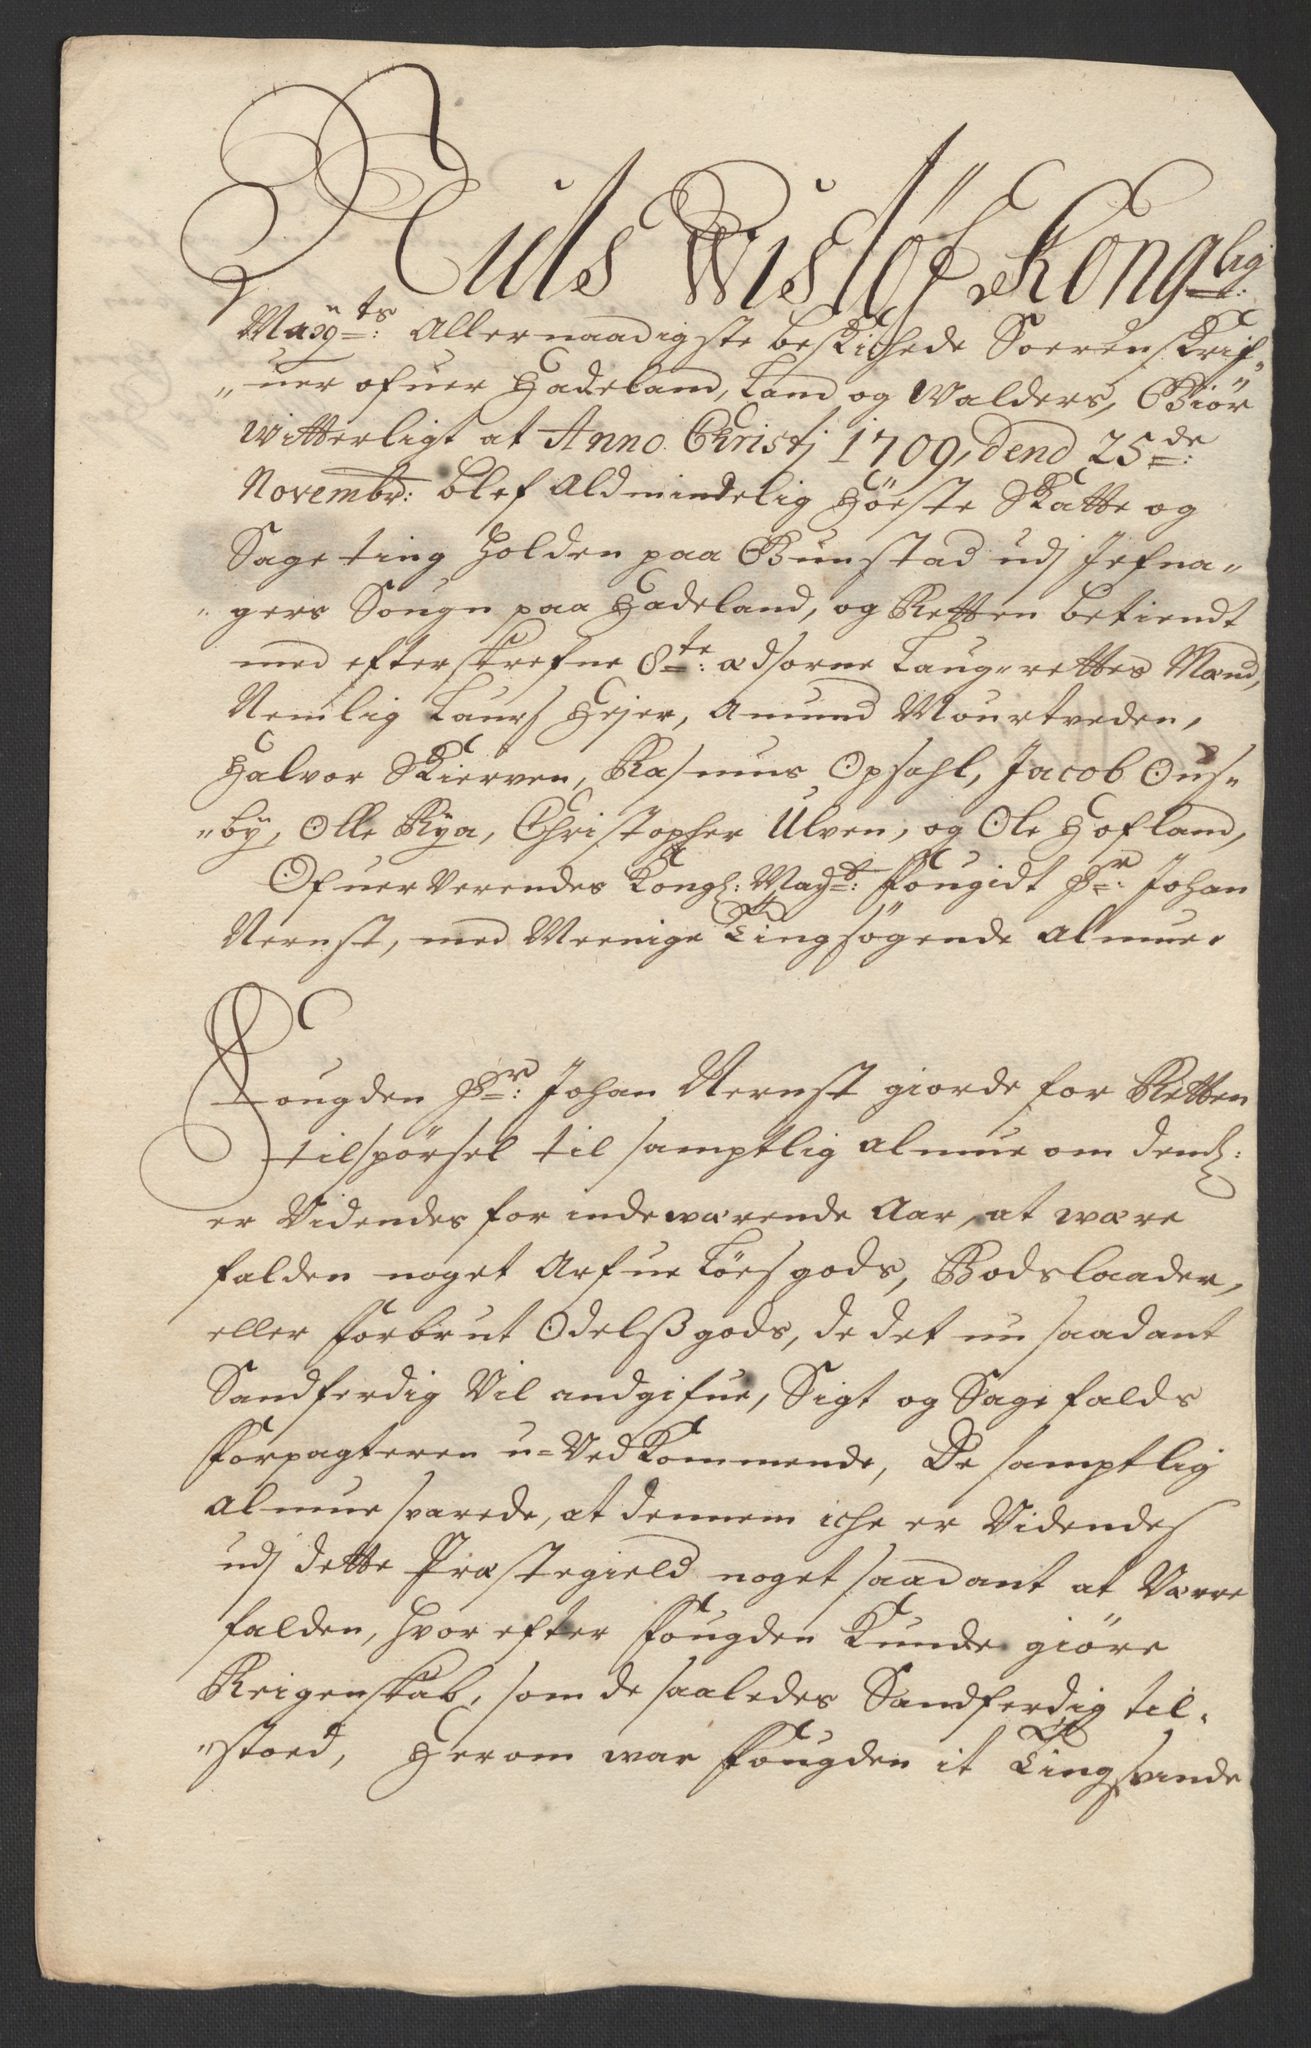 Niels Wisløf Kong:lig
Mayts: Allernaadigste beskichede Soerenskrif„
„uer ofuer Hadeland, Land og Walders, Giør
witterligt at Anno Christj 1709, dend 25de:
Novembr: blef Aldmindelig Høste Skatte og
Sageting holden paa Bunstad udj Jefna„
„gers Sougn paa Hadeland, og Retten betiendt
med efterskrefne 8te: Edsorne Laug-rettes Mænd,
Nemlig Laurs Hejer, Amund Mourtveden,
Halvor Skierven, Rasmus Opsahl, Jacob Ous„
„by, Olle Rya, Christopher Ulven, og Ole Hofland,
Ofuerverendes Kongl: Mayts: Fougidt Hr: Johan
Nernst, med Meenige Tingsøgende Almue.
Fougden Hr: Johan Nernst giorde for Retten
tilspørsel til samptlig Almue om dend:
er Videndes for indewærende Aar, at wære
falden noget Arfueløes gods, Bodslaader,
eller forbrut Odelsgods, de det nu saadant
Sandferdig Vil andgifue, Sigt og Sagefalds
forpagteren u-Vedkommende, De samptlig
Almue svarede, at dennem iche er Videndes
udj dette Præstegield noget saadant at Værre
falden, hvorefter Fougden Kunde giøre
Reigenskab, som de saaledes Sandferdig til„
„stoed, Herom war Fougden it Tingsvinde